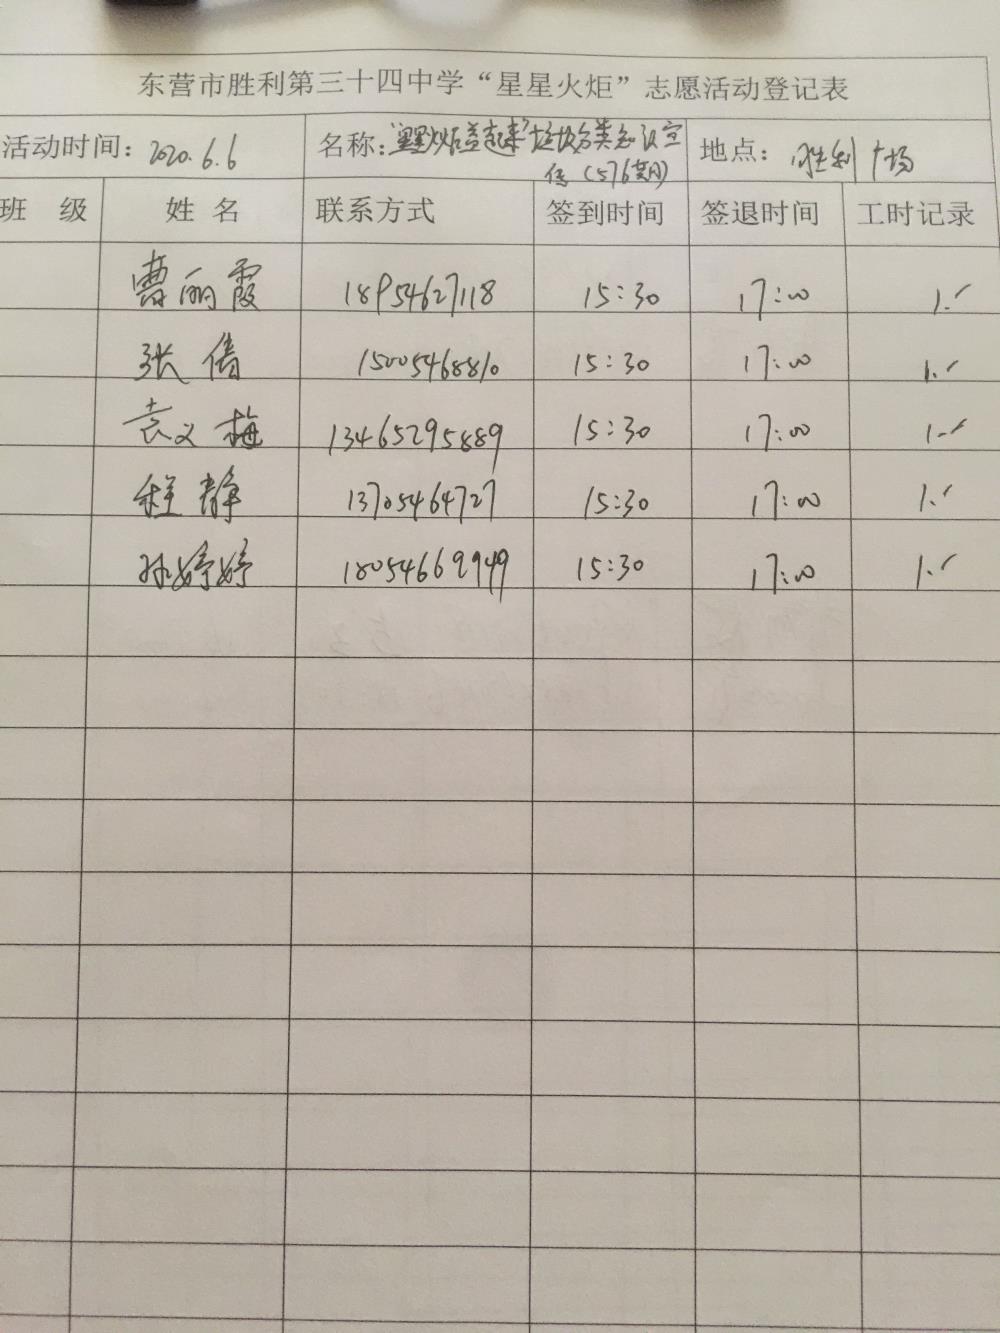 东营市胜利第三十四中学“星星火炬”志愿活动登记表
活动时间：2020.6.6 名称：“星星火炬益起来”垃圾分类知识宣传（576期） 地点：胜利广场
班 级 姓 名 联系方式 签到时间 签退时间 工时记录
曹丽霞 18954627118 15:30 17:00 1.5
张倩 15005468810 15:30 17:00 1.5
袁义梅 13465295889 15:30 17:00 1.5
程静 13705464727 15:30 17:00 1.5
孙婷婷 18054669949 15:30 17:00 1.5